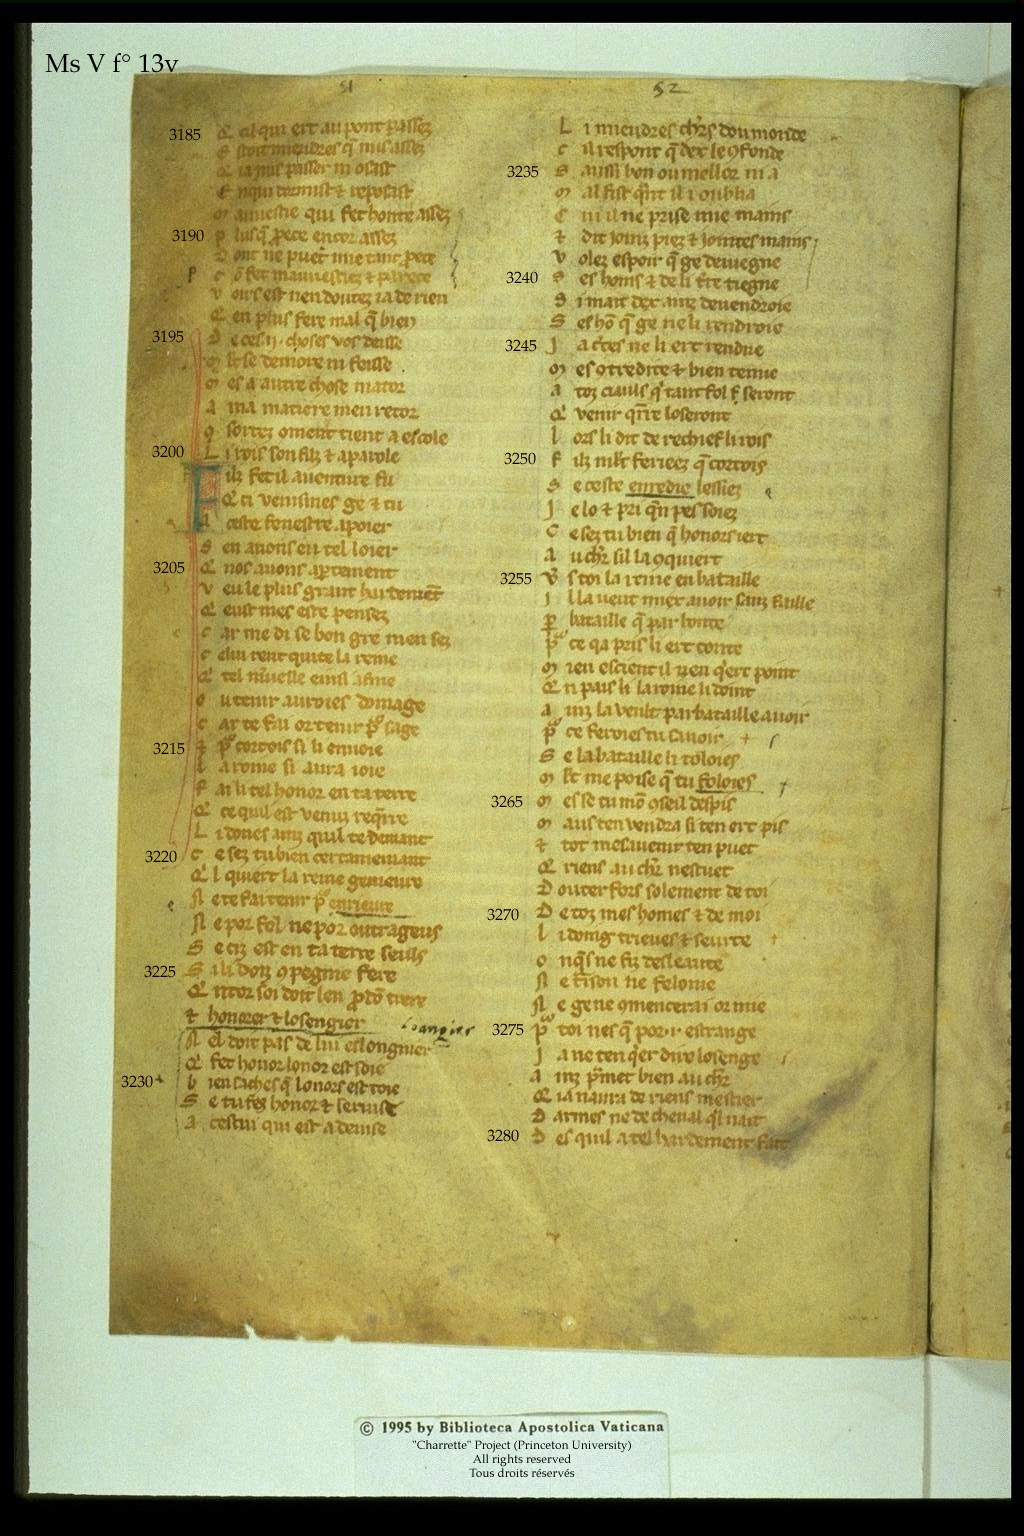 Ms V f° 13v
51
52
3185
Q cil qui ert au pont passez
E stoit miendres q̃ nus assez
Q ia nus passer ni osast
E nqui dormist ⁊ reposast
M auuestie qui fet honte assez
3190
P lusq̃ ꝓece encor assez
D ont ne puet mie tant ꝓece
C õ fet mauuestiez ⁊ parece
V oirs est nen doutez ia de rien
Q en plus fere mal q̃ bien
3195
D e ces .ij. choses vos deisse
M lt se demore ni feisse
M es a autre chose mator
A ma matiere men retor
O sortez 9ment tient a escole
3200
L i rois son filz ⁊ aparole
F ilz fet il auenture fu
Q ci venismes ge ⁊ tu
A ceste fenestre apoier
S en auons eu tel loier
3205
Q nos auons aꝑtement
V eu le plus grant hardement
Q eust mes este pensez
C ar me di se bon gre men sez
C elui rent quite la reine
O u tenir auroies domage
C ar te fai or tenir pͬ sage
3215
⁊ pͬ cortois si li enuoie
L a roine si aura ioie
F ai li tel honor en ta terre
Q ce quil est venuz reqͥrre
L i dones anz quil te demant
3220
C e sez tu bien certainemant
Q l quiert la reine genieure
N e te fai tenir pͬ enrieure
N e por fol ne por outrageus
S e ciz est en ta terre seuls
3225
S i li doiz 9pegnie fere
Q ntor soi doit len ꝓdō trere
⁊ honorer ⁊ losengier
losangier
N el doit pas de lui eslongnier
Q fet honor lonor est soie
3230
B ien saches q̃ lonors est toie
S e tu fez honor ⁊ seruise
A cestui qui est a deuise
L i miendres chr̃s dou monde
C il respont q̃ dex le 9fonde
3235
S aussi bon ou mellor ni a
M al fist qñt il i oublia
C ui il ne prise mie mains
⁊ dit joinz piez ⁊ jointes mains
V olez espoir q̃ ge deuiegne
3240
S es homs ⁊ de li tr̃e tiegne
S i mait dex anz deuendroie
S es hō q̃ ge ne li rendroie
3245
J a certes ne li ert rendue
M es 9tredite ⁊ bien tenue
A toz ciauls qͥ tant fol s̃ seront
Q venir qͥrre loseront
L ors li dit de rechief li rois
3250
F ilz mlt feriez q̃ cortois
S e ceste enredie lessiez
J e lo ⁊ pri qñ pes soiez
C e sez tu bien q̃ honors iert
A u chr̃ sil la 9quiert
3255
V̾s toi la reine en bataille
I l la veut miex auoir sanz faille
ꝑ bataille q̃ par bonte
pͬ ce qa pris li ert conte
M ien escient il nen qͥert point
Q n pais li la roine li doint
A inz la veult par bataille auoir
pͬ ce feroies tu sauoir
S e la bataille li toloies
M lt me poise q̃ tu foloies
3265
M es se tu mō 9seil despis
M ains ten vendra si ten ert pis
⁊ tot mesauenir ten puet
Q riens au chr̃ nestuet
D outer fors solement de toi
3270
D e toz mes homes ⁊ de moi
L i doing trieues ⁊ seurte
O nq̃s ne fiz desleaute
N e traison ne felonie
N e ge ne 9mencerai or mie
3275
pͬ toi nes q̃ por .i. estrange
J a ne ten qͥer dire losenge
A inz p̃met bien au chr̃
Q ia naura de riens mestier
D armes ne de cheual qͥl nait
3280
D es quil a tel hardement fait
© 1995 by Biblioteca Apostolica Vaticana
"Charrette" Project (Princeton University)
All rights reserved
Tous droits réservés